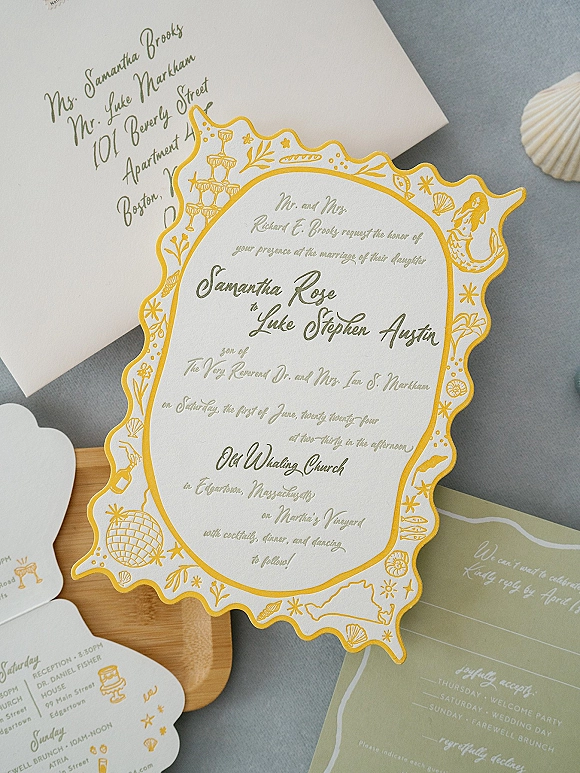 Ms. Samantha Brooks
Mr. Luke Markham
101 Beverly Street
Apartment
Boston,
Mr. and Mrs.
Richard E. Brooks request the honor of
your presence at the marriage of their daughter
Samantha Rose
to
Luke Stephen Austin
son of
The Very Reverend Dr. and Mrs. Ian S. Markham
on Saturday, the first of June, twenty twenty-four
at two-thirty in the afternoon
Old Whaling Church
in Edgartown, Massachusetts
on Martha's Vineyard
with cocktails, dinner, and dancing
to follow!
Road
Saturday
RECEPTION • 3:30PM
DR. DANIEL FISHER
HOUSE
99 Main Street
Edgartown
Street
Sunday
FAREWELL BRUNCH • 10AM-NOON
ATRIA
Main Street
We can't wait to celebrate
Kindly reply by April
joyfully accepts:
THURSDAY • WELCOME PARTY
SATURDAY • WEDDING DAY
SUNDAY • FAREWELL BRUNCH
regretfully declines
Please indicate each